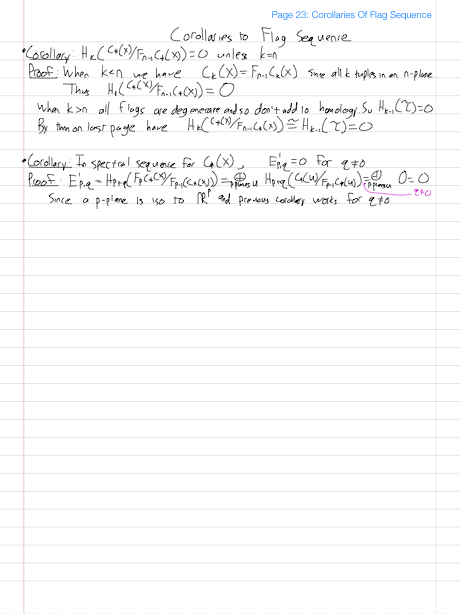 Page 23: Corollaries Of Flag Sequence
Corollaries to Flag Sequence
• Corollary: H_k(C_*(X)/F_{n-1}C_*(X)) = 0 unless k=n
Proof: When k<n we have C_k(X) = F_{n-1}C_k(X) since all k tuples in an n-plane
Thus H_k(C_*(X)/F_{n-1}C_*(X)) = 0
When k>n all flags are degenerate and so don't add to homology. So H_{k-1}(T)=0
By thm on last page have H_k(C_*(X)/F_{n-1}C_*(X)) ≅ H_{k-1}(T)=0
• Corollary: In spectral sequence for C_*(X), E^1_{p,q}=0 for q≠0
Proof: E^1_{p,q} = H_{p+q}(F_pC_*(X)/F_{p-1}C_*(X)) = ⊕_{p planes U} H_{p+q}(C_*(U)/F_{p-1}C_*(U)) = ⊕_{p planes U} 0 = 0
q≠0
Since a p-plane is iso to ℝ^p and previous corollary works for q≠0